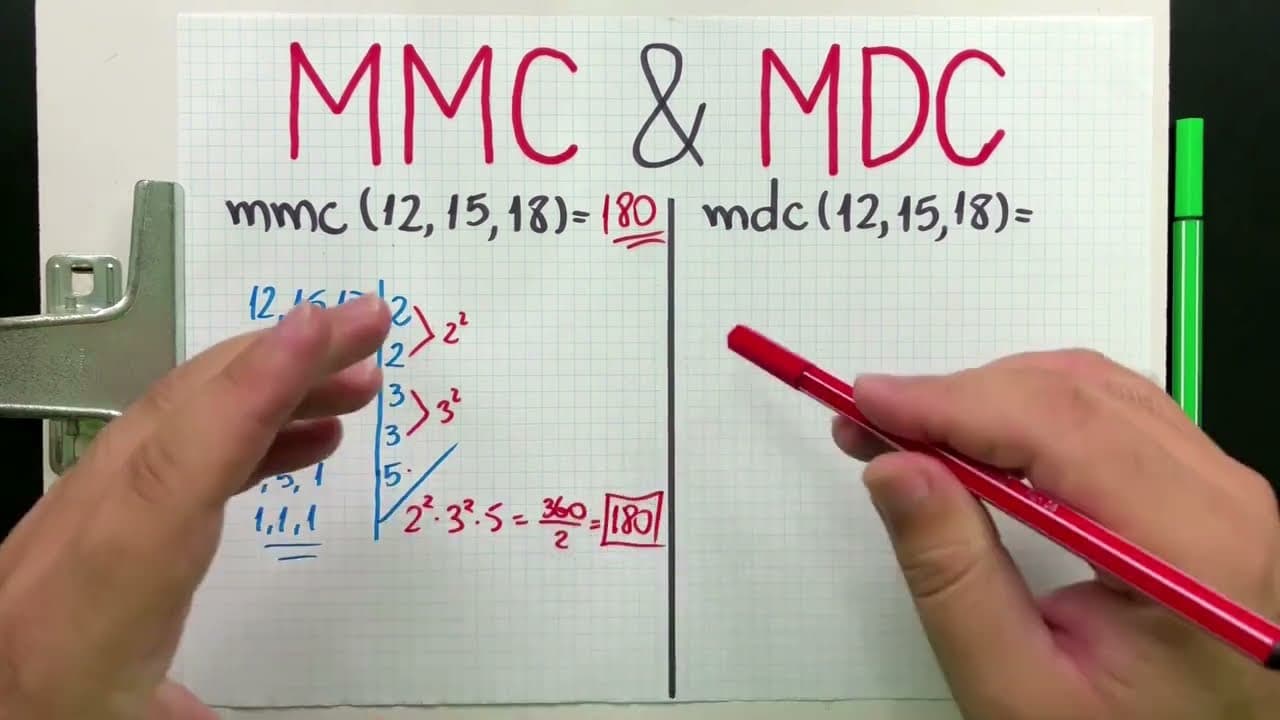 MMC & MDC
mmc (12, 15, 18) = 180
12, 15, | 2
2
> 2²
3
3
> 3²
, 5, 1 | 5
1, 1, 1
2² · 3² · 5 = 360/2 = 180
mdc (12, 15, 18) =